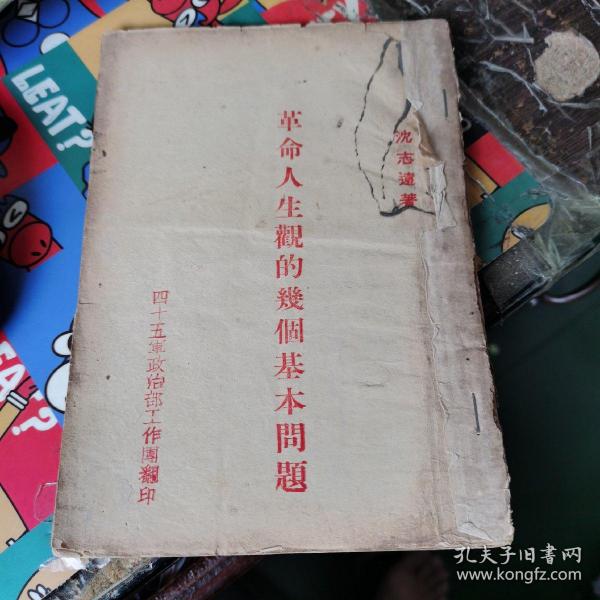 沈志遠著
革命人生觀的幾個基本問題
四十五軍政治部工作團翻印
LEAT?
EAT?
孔夫子旧书网
www.kongfz.com